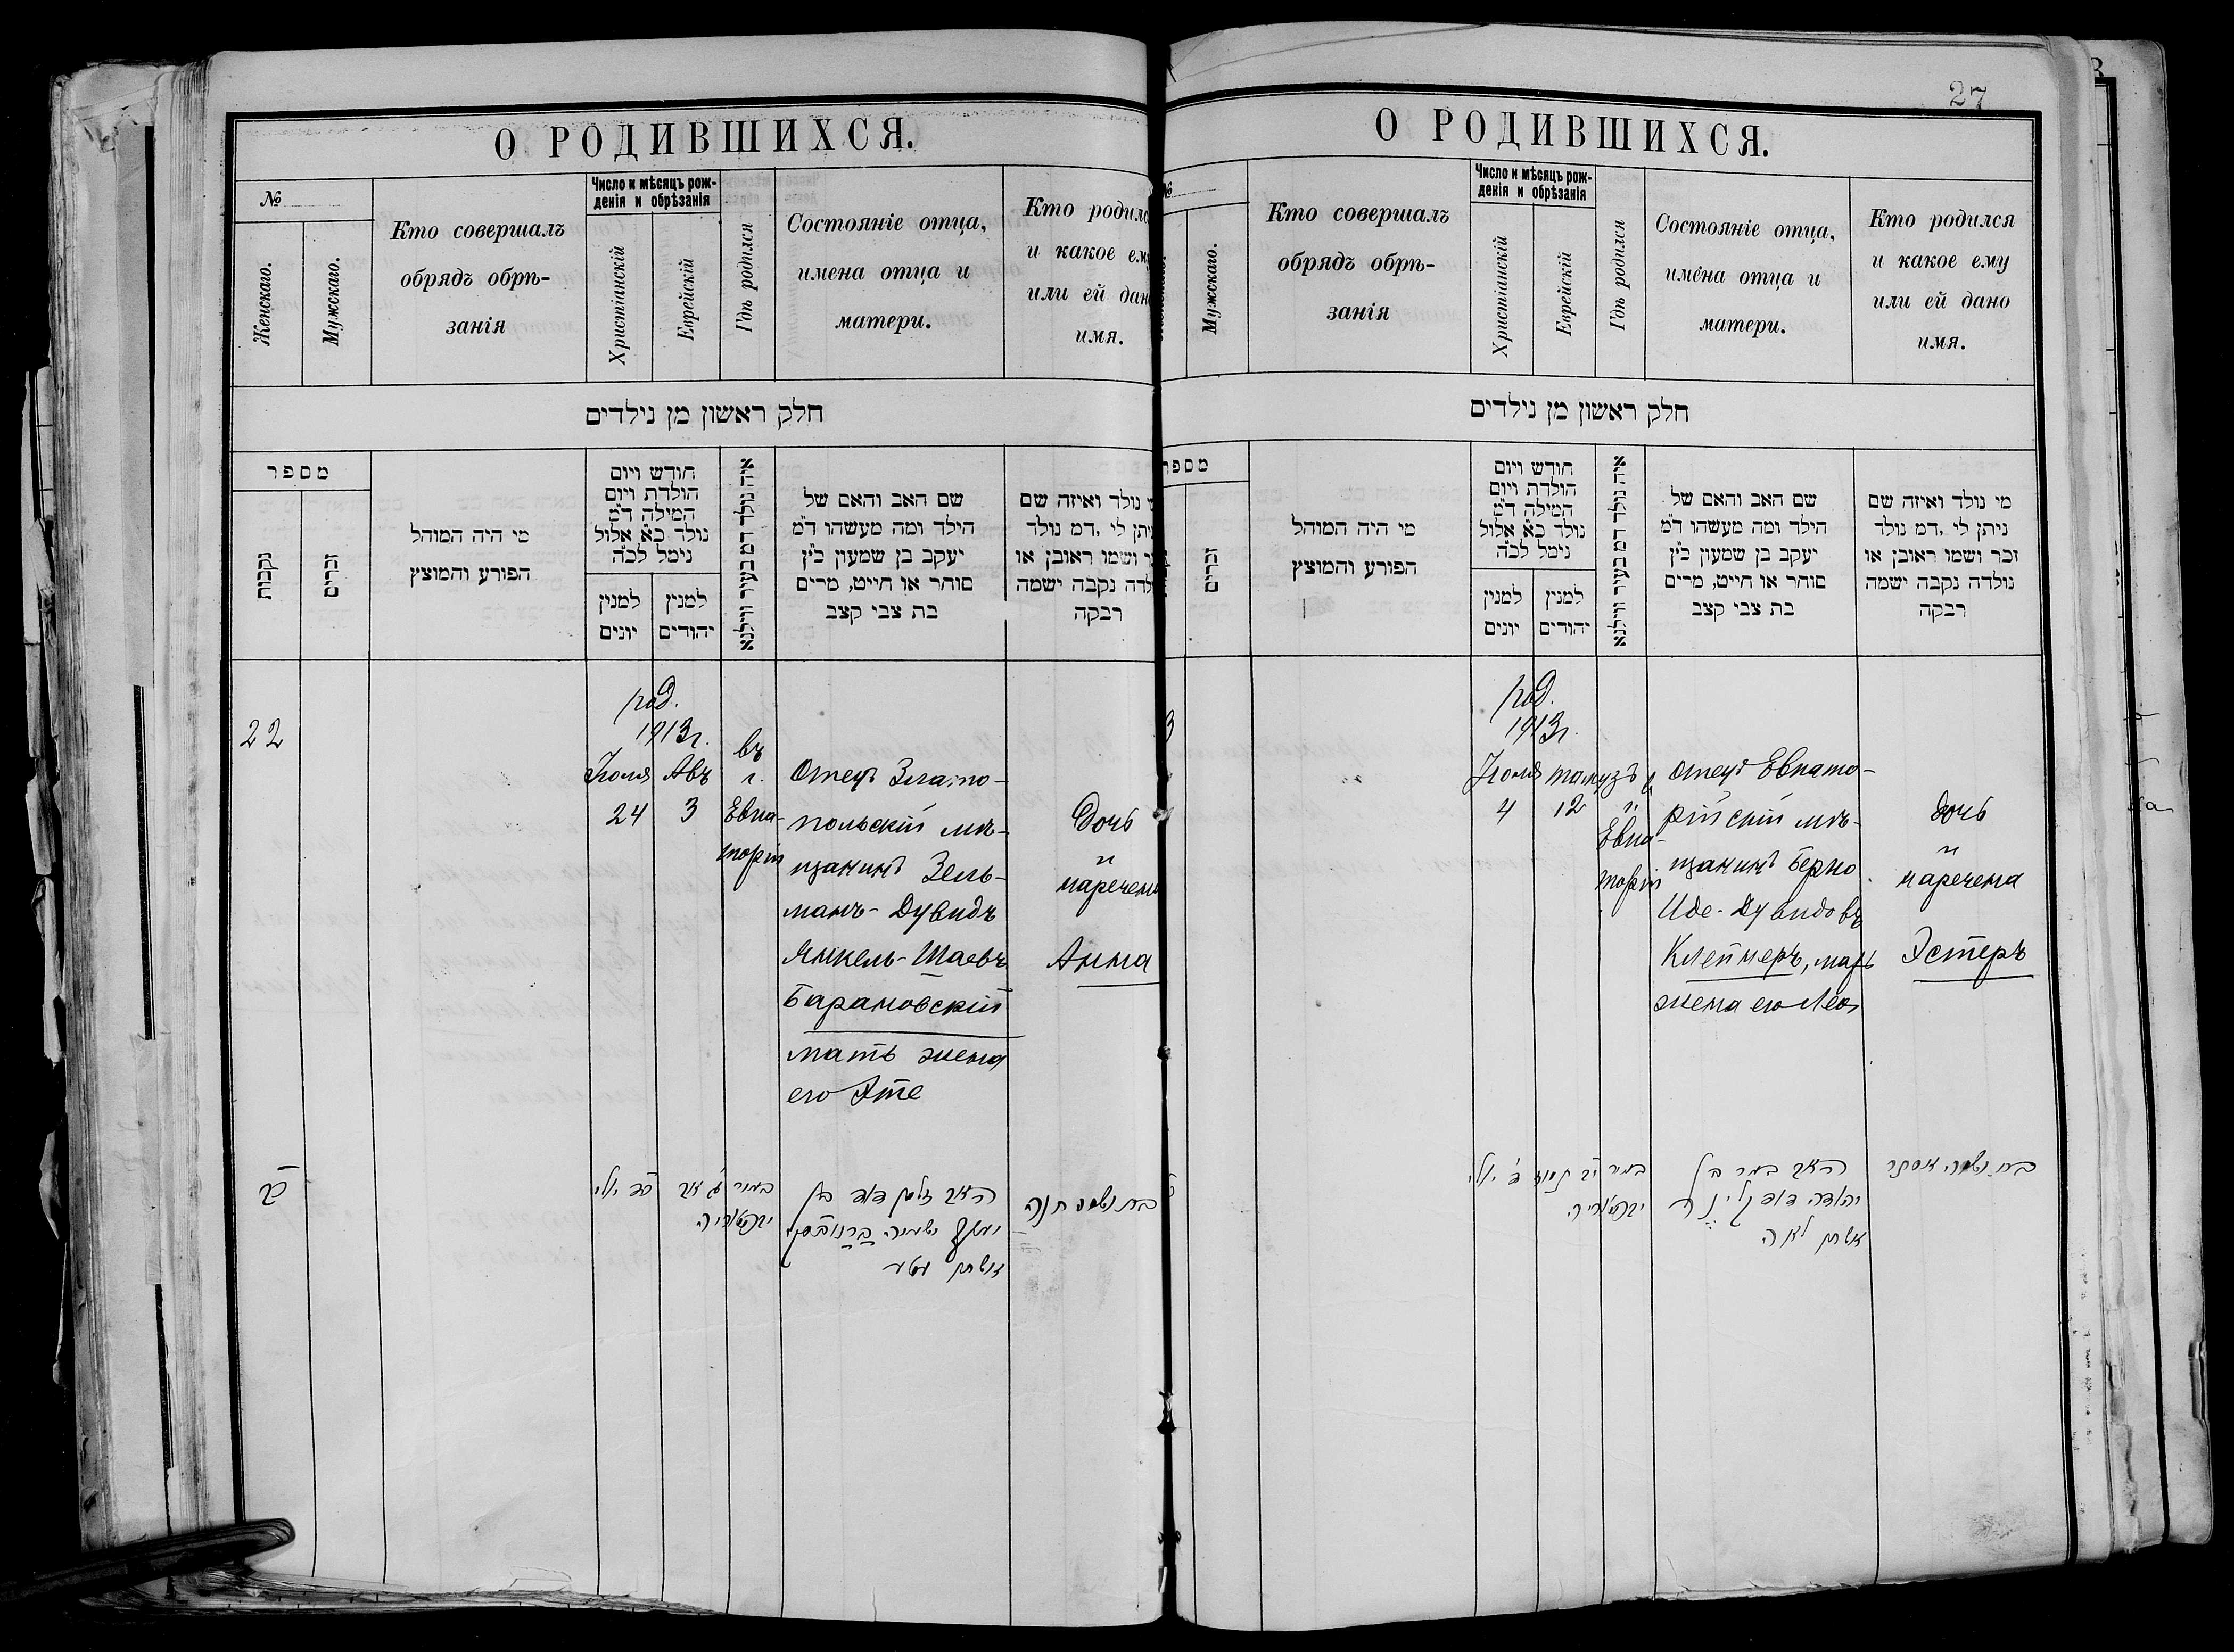 О РОДИВШИХСЯ.
№
Женскаго.
Мужскаго.
Кто совершалъ
обрядъ обрѣ-
занія
Число и мѣсяцъ рож-
денія и обрѣзанія
Христіанскій
Еврейскій
Гдѣ родился
Состояніе отца,
имена отца и
матери.
Кто родилс
и какое ем
или ей дан
имя.
חלק ראשון מן נילדים
מספר
נקבות
זכרים
מי היה המוהל
הפורע והמוצץ
חודש ויום
הולדת ויום
המילה ד"מ
נולד כ"א אלול
נימל לכ"ה
למנין
יונים
למנין
יהודים
איה נולד דמ בעיר ווילנא
שם האב והאם של
הילד ומה מעשהו ד"מ
יעקב בן שמעון כ"ץ
סוחר או חייט, מרים
בת צבי קצב
נולד ואיזה שם
ניתן לי, דמ נולד
ושמו ראובן או
נקבה ישמה
רבקה
22
род.
1913г.
Іюля
24
Авъ
3
въ
г.
Евпа-
торіи
Отецъ Злато-
польскій мѣ-
щанинъ Зель-
манъ-Дувидъ
Янкель-Шаевъ
Барановскій
мать жена
его Эте
Дочь
и
наречен
Анна
אב
האב זלמן דוד בן
אשתו
חנה
27
О РОДИВШИХСЯ.
№
Мужскаго.
Кто совершалъ
обрядъ обрѣ-
занія
Число и мѣсяцъ рож-
денія и обрѣзанія
Христіанскій
Еврейскій
Гдѣ родился
Состояніе отца,
имена отца и
матери.
Кто родился
и какое ему
или ей дано
имя.
חלק ראשון מן נילדים
מספר
זכרים
מי היה המוהל
הפורע והמוצץ
חודש ויום
הולדת ויום
המילה ד"מ
נולד כ"א אלול
נימל לכ"ה
למנין
יונים
למנין
יהודים
איה נולד דמ בעיר ווילנא
שם האב והאם של
הילד ומה מעשהו ד"מ
יעקב בן שמעון כ"ץ
סוחר או חייט, מרים
בת צבי קצב
מי נולד ואיזה שם
ניתן לי, דמ נולד
זכר ושמו ראובן או
נולדה נקבה ישמה
רבקה
3
род.
1913г.
Іюля
4
тамузъ
12
г.
Евпа-
торіи
отецъ Евпато-
рійскій мѣ-
щанинъ Берко
Иде-Дувидовъ
Клейнеръ, мать
жена его Лея
дочь
и
наречена
Эстеръ
תמוז
יהודה דוד קליינר
אשתו לאה
אסתר